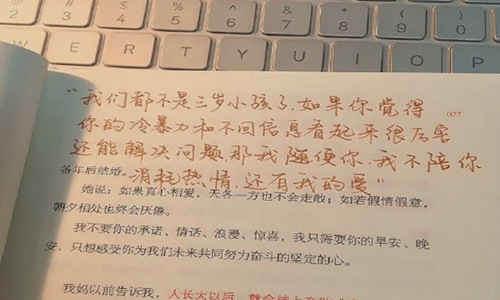 2 3 4 5 6 7 8 9
W E R T Y U I O P
"我们都不是三岁小孩了.如果你觉得
027
你的冷暴力和不回信息看起来很厉害
还能解决问题那我随便你.我不陪你
备年后结婚。
消耗热情.还有我的爱"
她说：如果真心相爱，天各一方也不会走散；如若假情假意，
朝夕相处也终会厌倦。
我不要你的承诺、情话、浪漫、惊喜，我只需要你的早安、晚
安，只想感受你为我们未来共同努力奋斗的坚定的心。
我妈以前告诉我，人长大以后，就会